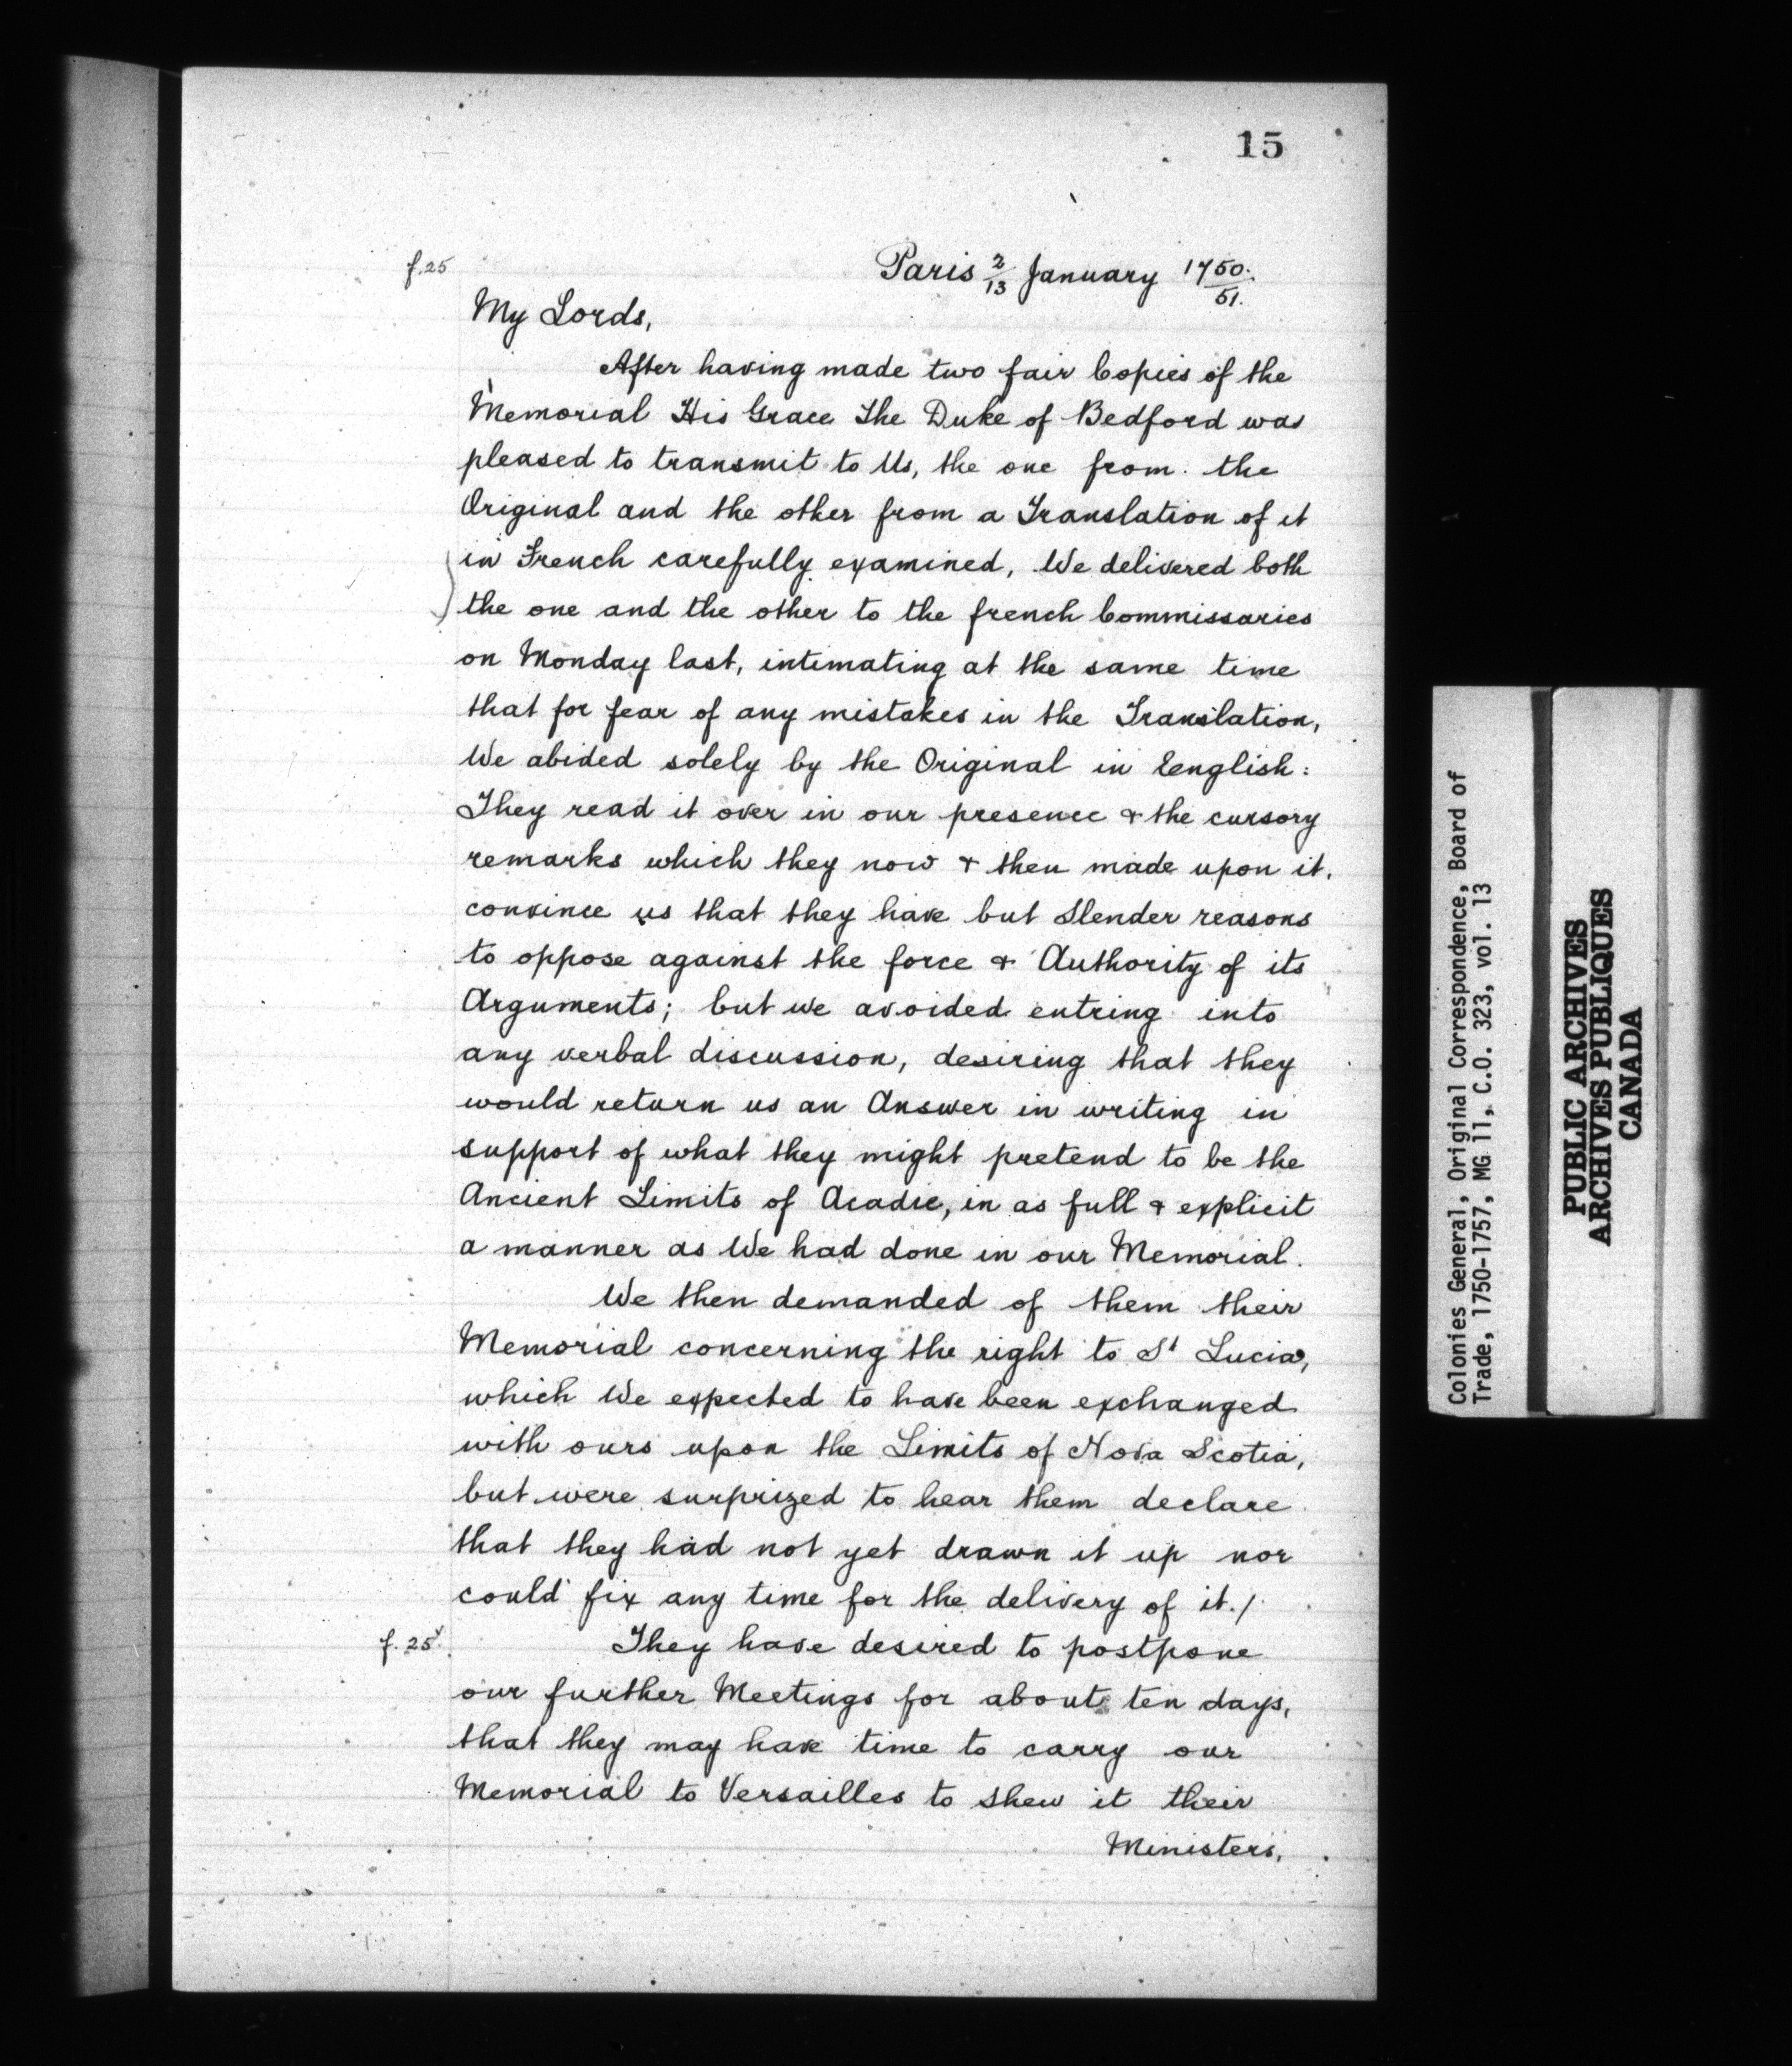 15
f. 25
Paris 2/13 January 1750/51.
My Lords,
After having made two fair Copies of the
Memorial His Grace The Duke of Bedford was
pleased to transmit to Us, the one from the
Original and the other from a Translation of it
in French carefully examined, We delivered both
the one and the other to the french Commissaries
on Monday last, intimating at the same time
that for fear of any mistakes in the Translation,
We abided solely by the Original in English:
They read it over in our presence & the cursory
remarks which they now & then made upon it,
convince us that they have but Slender reasons
to oppose against the force & Authority of its
Arguments; but we avoided entring into
any verbal discussion, desiring that they
would return us an Answer in writing in
support of what they might pretend to be the
Ancient Limits of Acadie, in as full & explicit
a manner as We had done in our Memorial.
We then demanded of them their
Memorial concerning the right to St Lucia,
which We expected to have been exchanged
with ours upon the Limits of Nova Scotia,
but were surprized to hear them declare
that they had not yet drawn it up nor
could fix any time for the delivery of it./
f. 25v.
They have desired to postpone
our further Meetings for about ten days,
that they may have time to carry our
Memorial to Versailles to shew it their
Ministers,
Colonies General, Original Correspondence, Board of
Trade, 1750-1757, MG 11, C.O. 323, vol. 13
PUBLIC ARCHIVES
ARCHIVES PUBLIQUES
CANADA